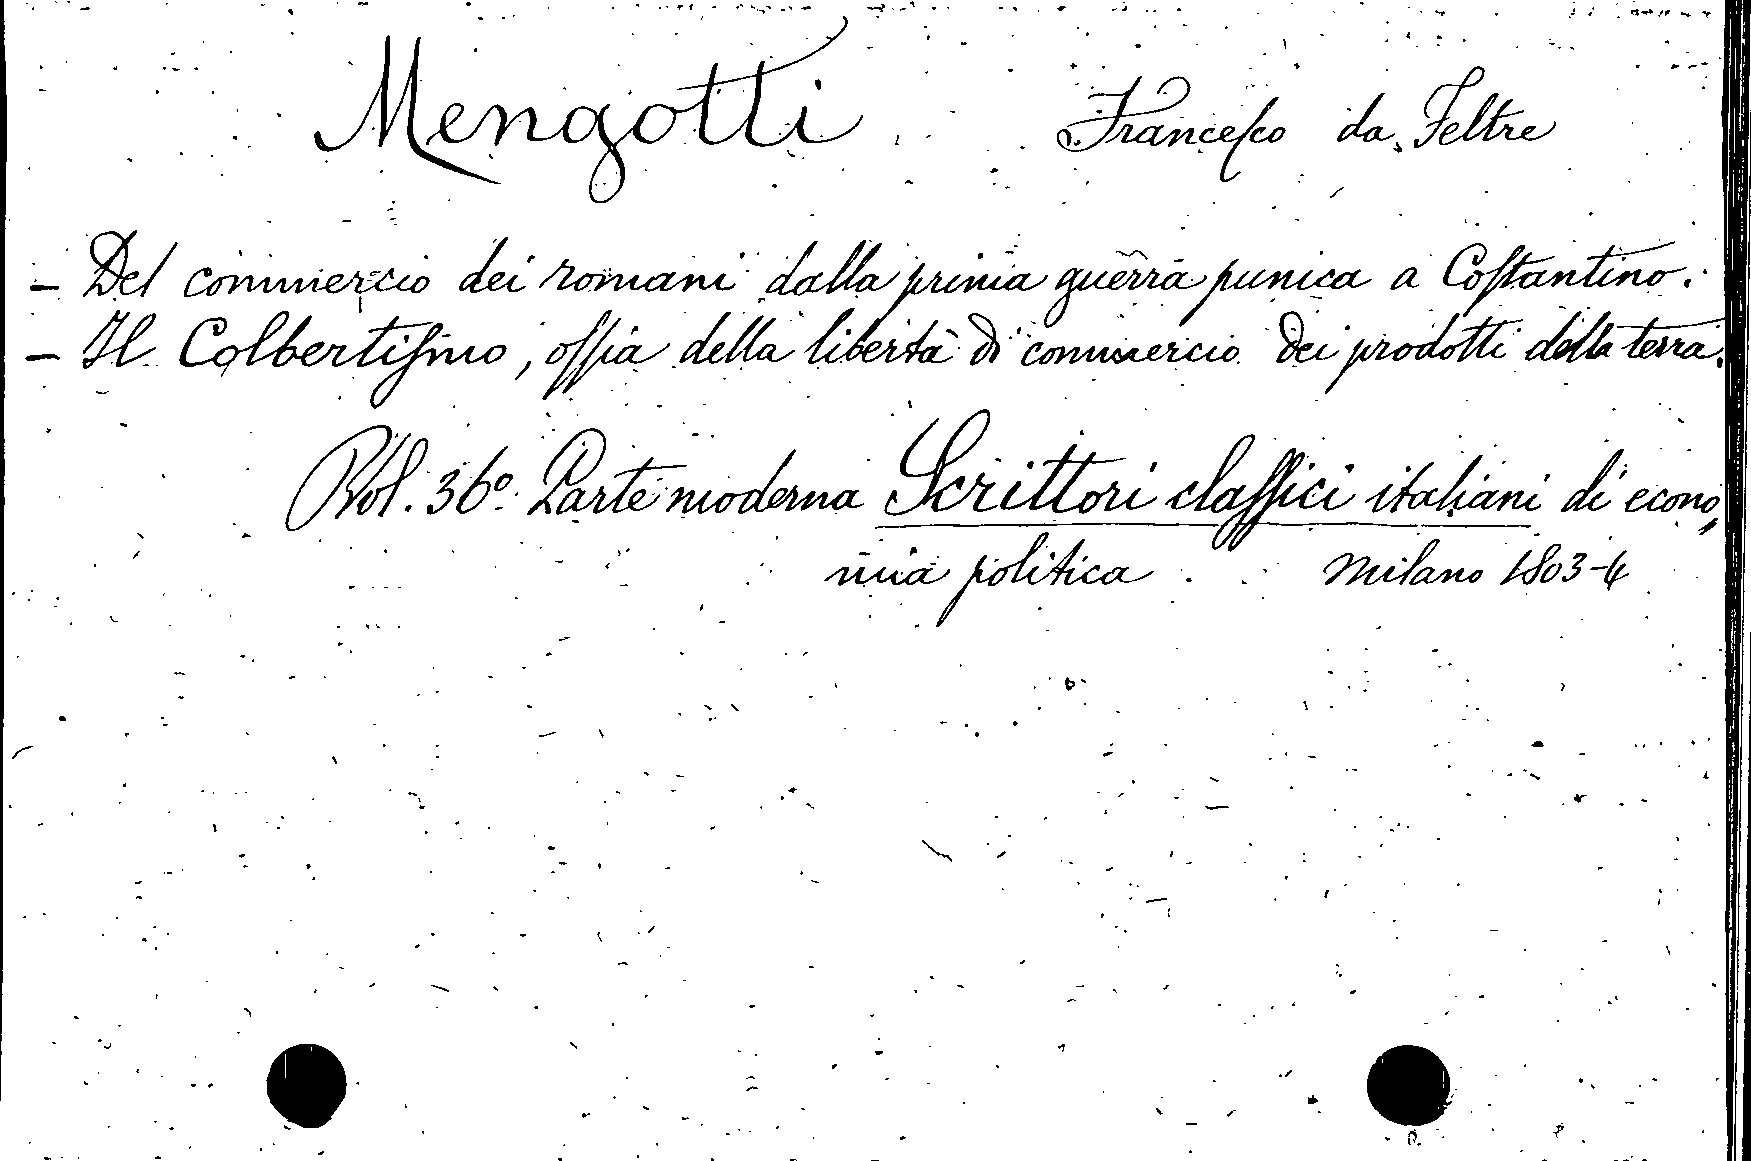 Mengotti Francesco da Feltre
- Del commercio dei romani dalla prima guerra punica a Costantino.
- Il Colbertismo, ossia della libertà di commercio dei prodotti della terra.
Vol. 36º Parte moderna Scrittori classici italiani di econo,
mia politica. Milano 1803-4